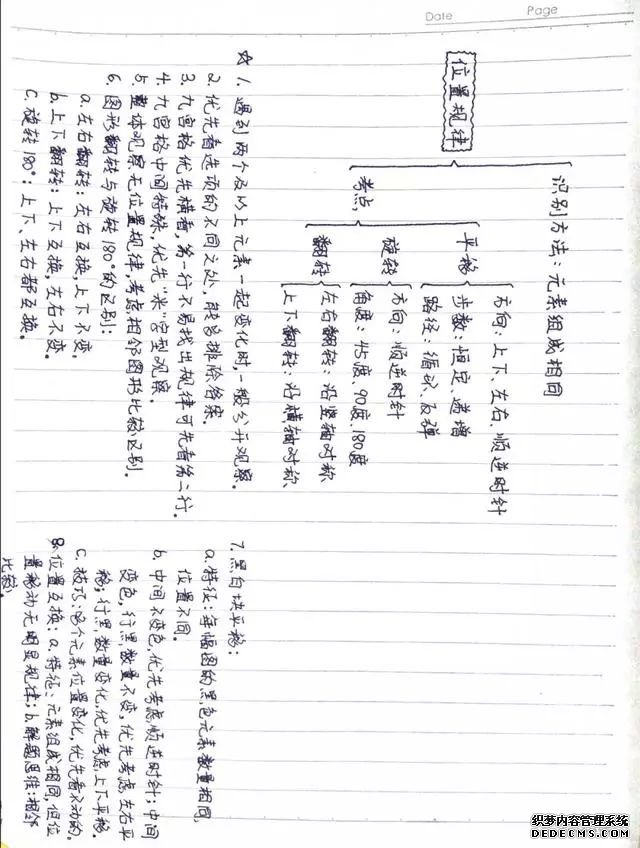 Date
Page
位置规律
识别方法：元素组成相同
考点
平移
方向：上下、左右、顺逆时针
步数：恒定、递增
路径：循环、反弹
旋转
方向：顺逆时针
角度：45度、90度、180度
翻转
左右翻转：沿竖轴对称
上下翻转：沿横轴对称
☆ 1. 遇到两个及以上元素一起变化时，一般分开观察。
2. 优先看选项的不同之处，能够排除答案。
3. 九宫格优先横看，第一行不易找出规律可先看第二行。
4. 九宫格中间特殊，优先“米”字型观察。
5. 整体观察无位置规律，考虑相邻图形比较区别。
6. 图形翻转与旋转180°的区别：
a. 左右翻转：左右互换，上下不变。
b. 上下翻转：上下互换，左右不变。
c. 旋转180°：上下、左右都互换。
7. 黑白块平移：
a. 特征：每幅图的黑色元素数量相同，
位置不同。
b. 中间不变色，优先考虑顺逆时针；中间
变色，行黑数量不变，优先考虑左右平
移；行黑数量变化，优先考虑上下平移。
c. 技巧：多个元素位置变化，优先看不动的。
8. 位置互换：a. 特征：元素组成相同，但位
置移动无明显规律；b. 解题思维：相邻
比较。
织梦内容管理系统
DEDECMS.COM